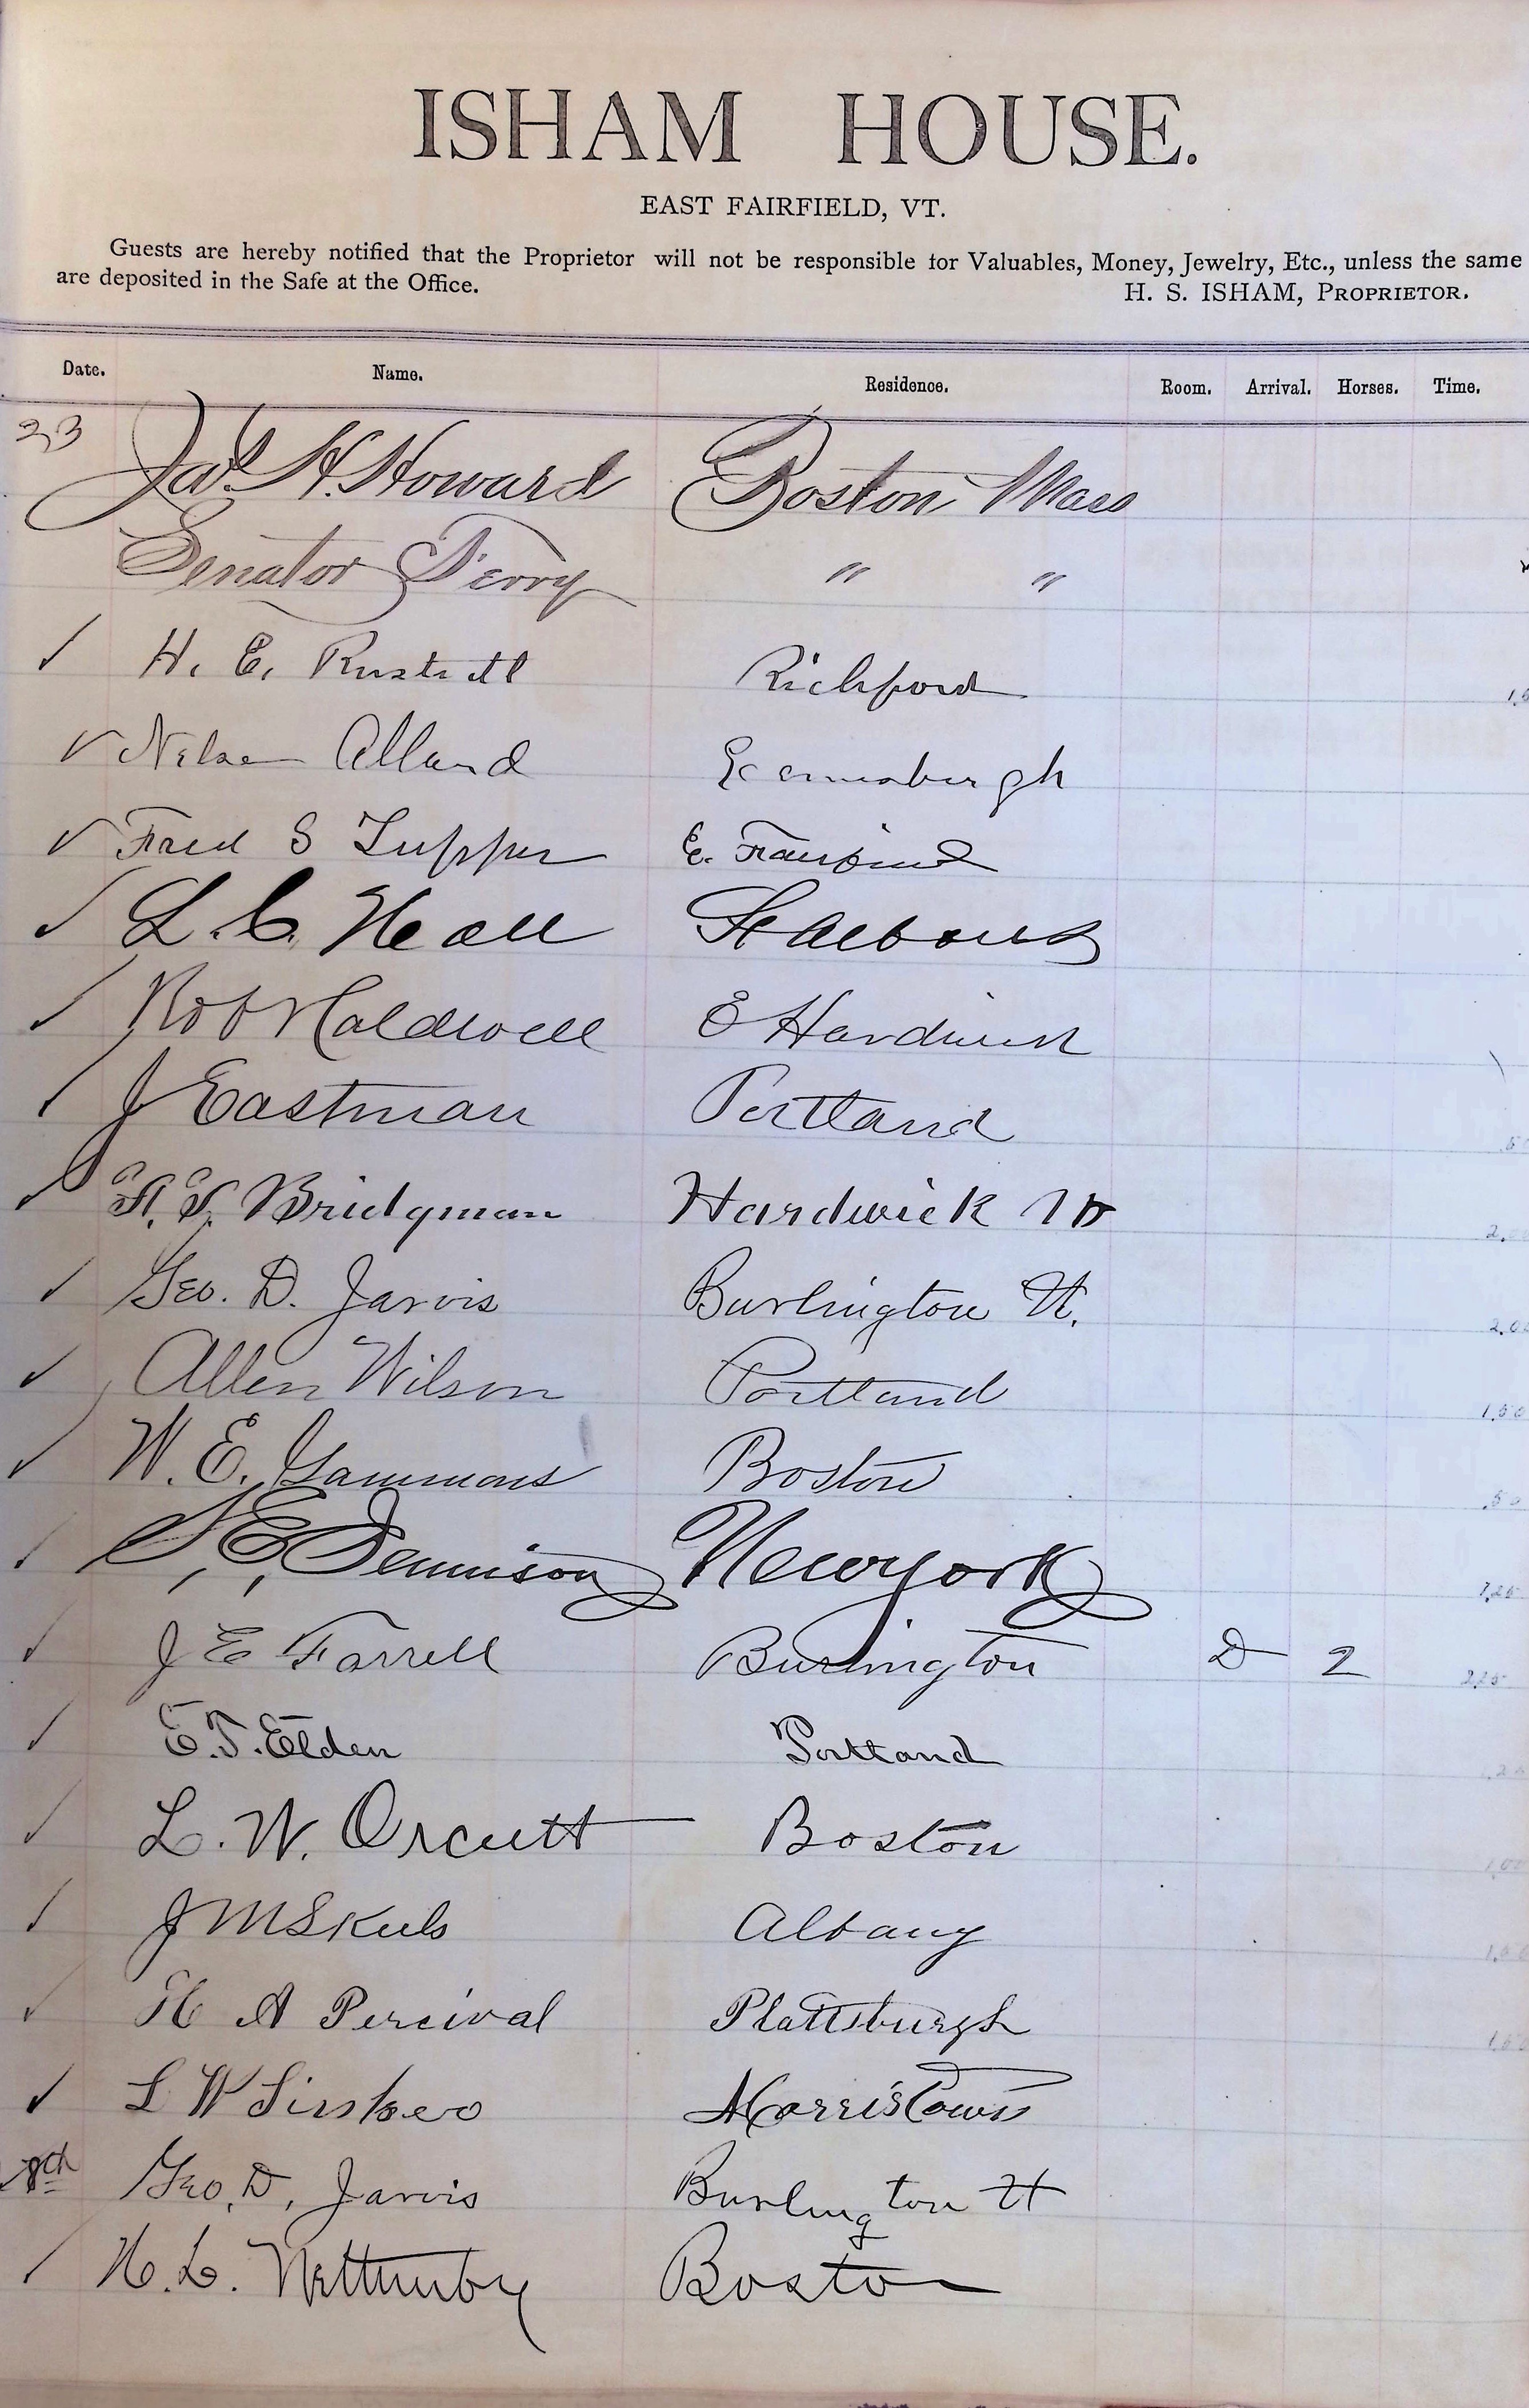 ISHAM HOUSE.
EAST FAIRFIELD, VT.
Guests are hereby notified that the Proprietor will not be responsible for Valuables, Money, Jewelry, Etc., unless the same
are deposited in the Safe at the Office.
H. S. ISHAM, PROPRIETOR.
Date. Name. Residence. Room. Arrival. Horses. Time.
23 Jas. H. Howard Boston Mass
Senator " "
H. E. Richford
Allard
Fred S Tupper E.
L. C. St Albans
Caldwell E Hardwick
J Eastman Portland
Bridgman Hardwick Vt
Geo. D. Jarvis Burlington Vt. 2.00
Allen Wilson Portland 1.50
W. E. Gammons Boston .50
E. Dennison New york 1.25
J E Farrell Burlington D 2 2.25
E. T. Elden Portland
L. W. Orcutt Boston 1.00
J M Albany
H A Percival Plattsburgh
L W Morristown
Geo. D. Jarvis Burlington Vt
H. L. Boston